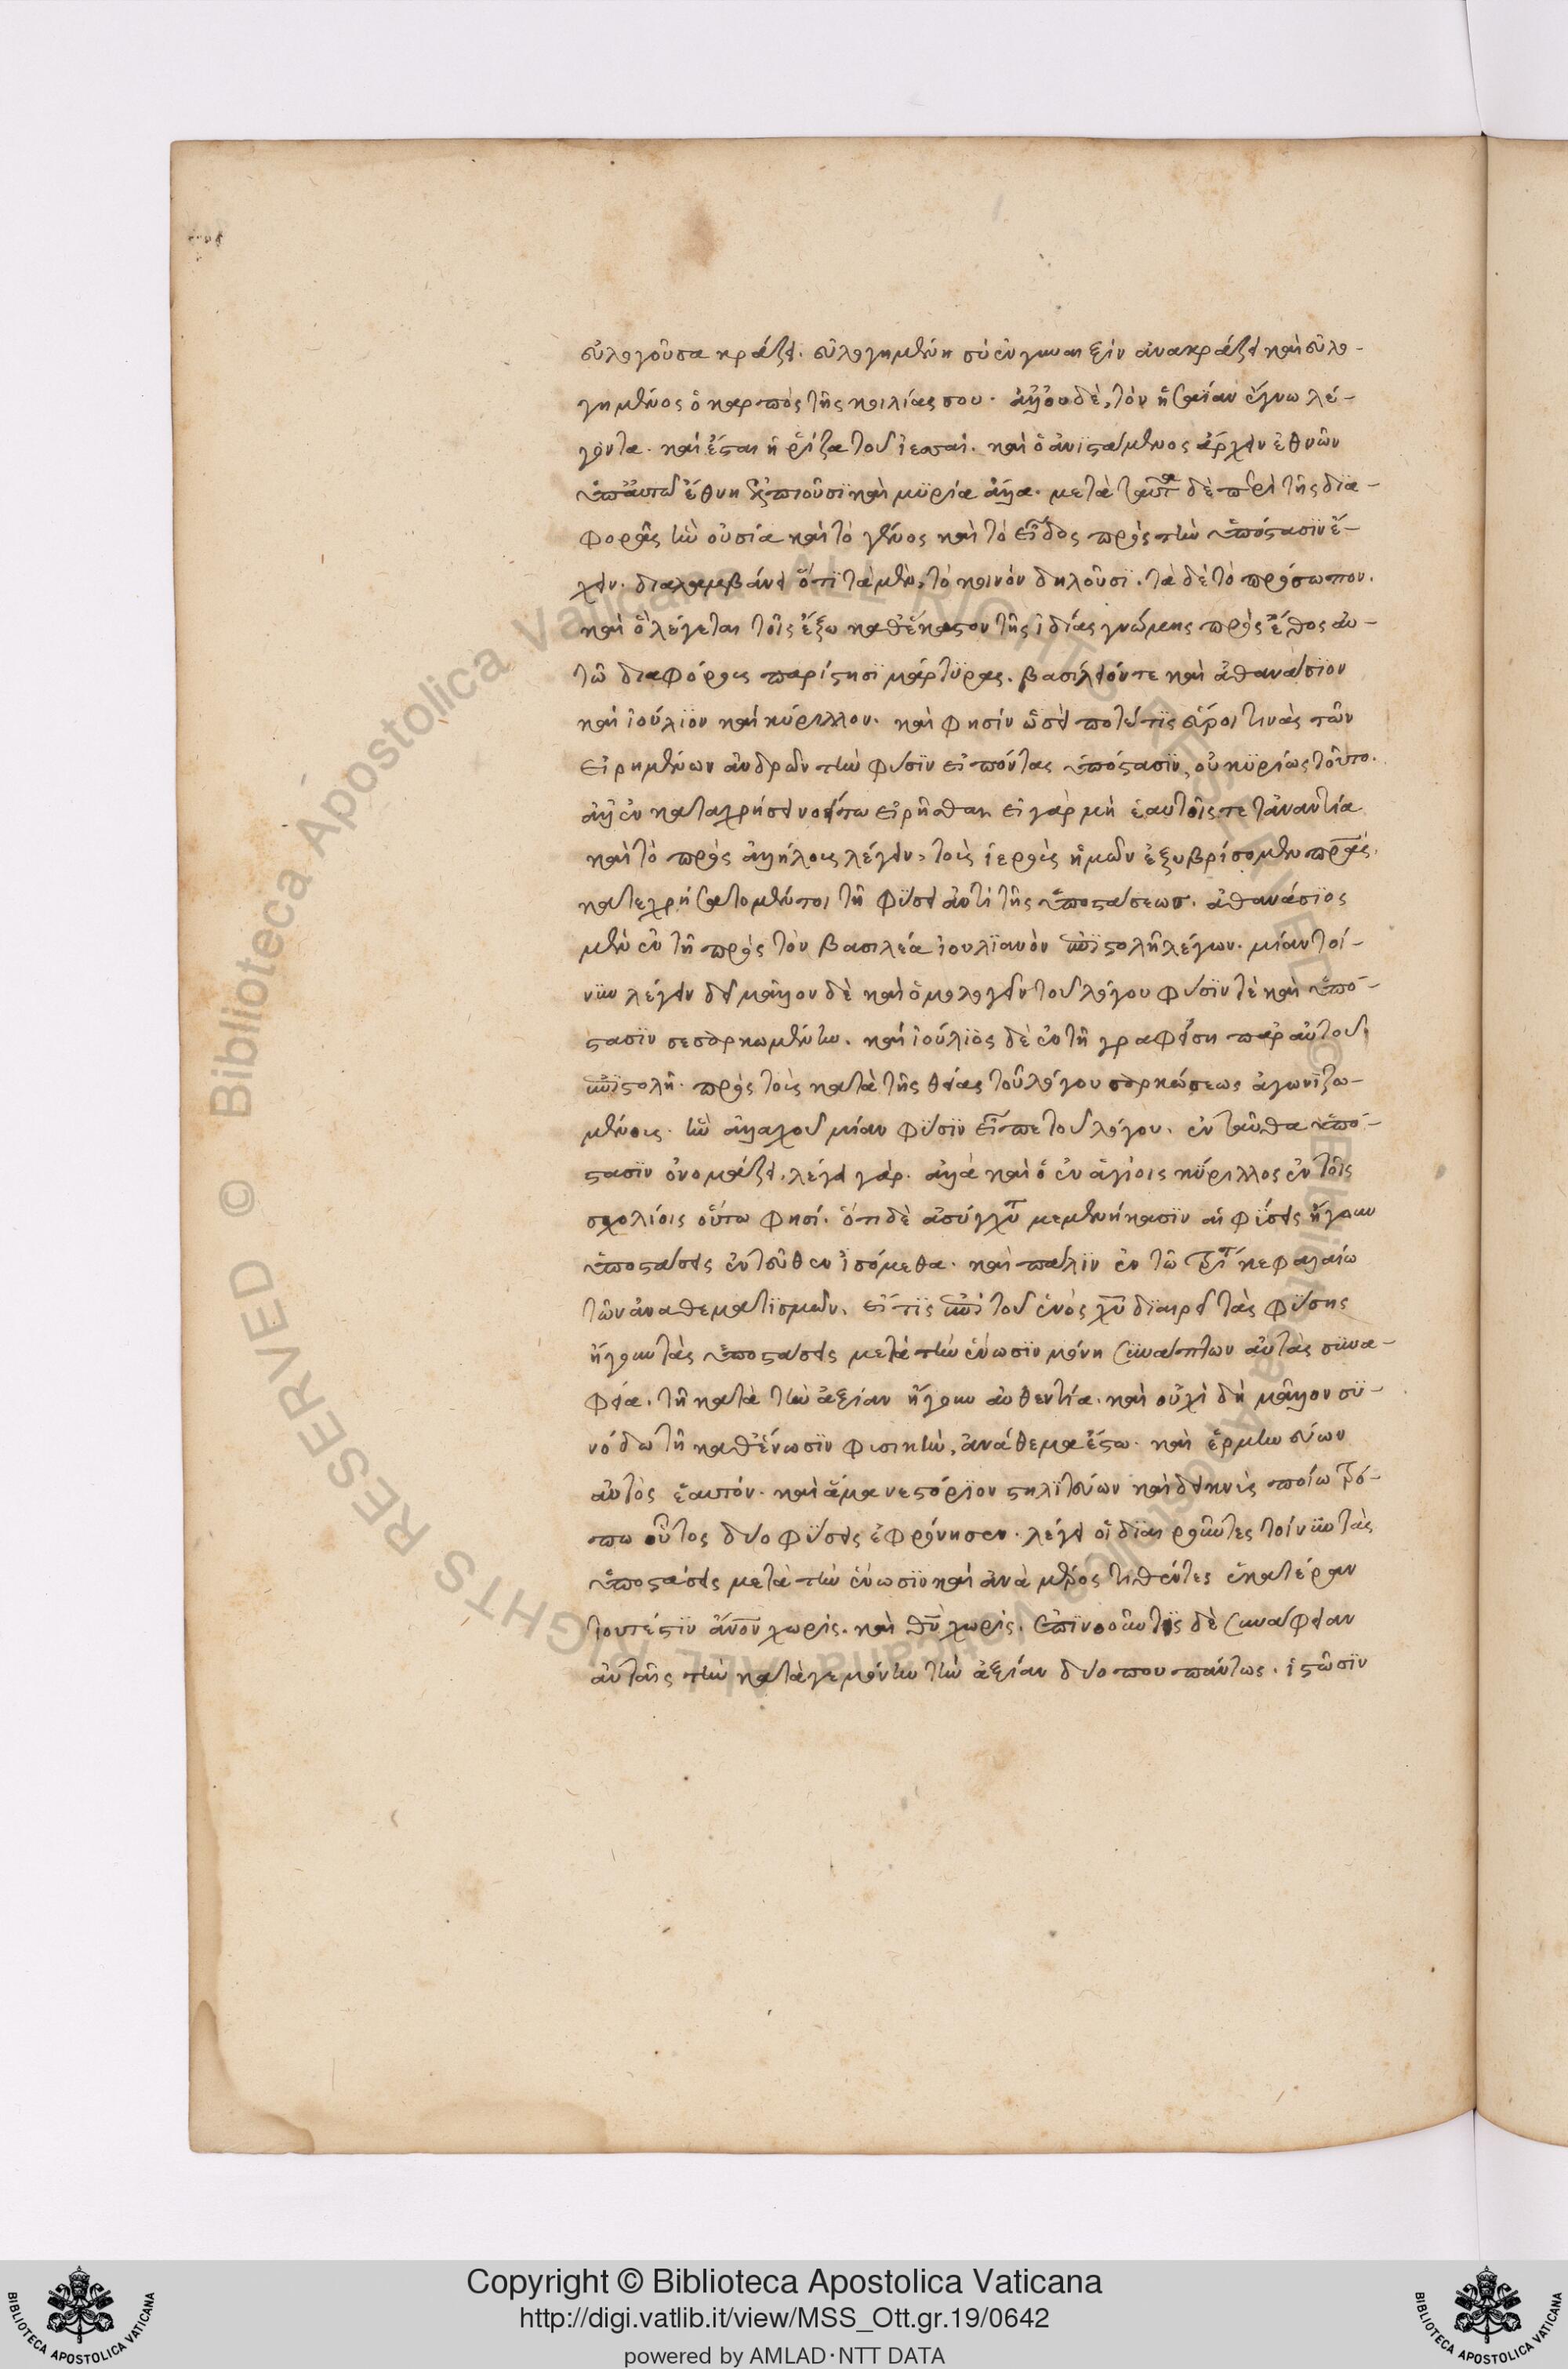 εὐλογοῦσα κράζει. εὐλογημένη σὺ ἐν γυναιξὶν ἀνακράζει καὶ εὐλο-
γημένος ὁ καρπὸς τῆς κοιλίας σου. ἄλλου δὲ, τὸν ἡσαΐαν ἔγνω λέ-
γοντα. καὶ ἔσται ἡ ῥίζα τοῦ ἰεσσαί. καὶ ὁ ἀνιϊστάμενος ἄρχειν ἐθνῶν
ἔθνη ἐλπιοῦσϊ καὶ μϋρία ἄλλα. μετὰ ταῦτα δὲ περὶ τῆς δϊα-
φορᾶς ἣν οὐσία καὶ τὸ γένος καὶ τὸ εἶδος πρὸς τὴν ὑπόστασϊν ἔ-
χειν. διαλαμβάνει ὅτϊ τὰ μὲν, τὸ κοινὸν δηλοῦσϊ. τὰ δὲ τὸ πρόσωπον.
καὶ ὃ λέγεται τοῖς ἔξω καθ' ἕκαστον τῆς ἰδίας γνώμης πρὸς ἔπος αὐ-
τῶ διαφόρους παρίστησϊ μάρτϋρας. βασίλειόν τε καὶ ἀθανάσϊον
καὶ ἰούλϊον καὶ κύριλλον. καὶ φησὶν ὡσεί ποτέ τϊς εὕροι τινὰς τῶν
εἰρημένων ἀνδρῶν τὴν φύσϊν εἰπόντας ὑπόστασϊν, οὐ κϋρίως τοῦτο.
ἀλλ' ἐν καταχρήσει νοείτω εἰρῆσθαι. εἰ γὰρ μὴ ἑαυτοῖς τε τἀναντία
καὶ τὸ πρὸς ἀλλήλους λέγειν, τοὺς ἱεροὺς ἡμῶν ἐξυβρίσομεν πρας.
κατεχρήσατο μέντοι τῆ φύσει ἀντὶ τῆς ὑποστάσεως. ἀθανάσϊος
μὲν ἐν τῆ πρὸς τὸν βασιλέα ἰουλϊανὸν ἐπϊστολῆ λέγων. μίαν τοί-
νϋν λέγειν δεῖ μᾶλλον δὲ καὶ ὁμολογεῖν τοῦ λόγου φύσϊν τὲ καὶ ὑπό-
στασϊν σεσαρκωμένην. καὶ ἰούλϊος δὲ ἐν τῆ γραφείση παρ' αὐτοῦ
ἐπϊστολῆ. πρὸς τοὺς κατὰ τῆς θείας τοῦ λόγου σαρκώσεως ἀγωνϊζο-
μένους. ἣν ἀλλαχοῦ μίαν φύσϊν εἶπε τοῦ λόγου. ἐνταῦθα ὑπό-
στασϊν ὀνομάζει, λέγει γάρ. ἀλλὰ καὶ ὁ ἐν ἁγίοις κϋριλλος ἐν τοῖς
σχολίοις οὕτω φησί. ὅτι δὲ ἀσύγχυτ μεμενήκασϊν αἱ φύσεις ἤγουν
ὑποστάσεις ἐντεῦθεν εἰσόμεθα. καὶ πάλϊν ἐν τῶ τρίτ κεφαλαίω
τῶν ἀναθεματϊσμῶν. εἴ τϊς ἐπὶ τοῦ ἑνὸς χυ δϊαιρεῖ τὰς φϋσης
ἤγουν τὰς ὑποστάσεις μετὰ τὴν ἕνωσϊν μόνη συνάπτων αὐτὰς σϋνα-
φεία. τῆ κατὰ τὴν ἀξίαν ἤγουν αὐθεντία. καὶ οὐχὶ δὴ μᾶλλον σϋ-
νόδω τῆ καθ' ἕνωσϊν φισικὴν, ἀνάθεμα ἔστω. καὶ ἑρμηνεύων
αὐτὸς ἑαυτόν. καὶ ἅμα νεστόρϊον στηλϊτεύων καὶ δεικνὺς ποίω τρό-
πω οὗτος δύο φύσεις ἐφρόνησεν. λέγει οἱ δϊαιροῦντες τοίνϋν τὰς
ὑποστάσεις μετὰ τὴν ἕνωσϊν καὶ ἀνὰ μέρος τιθέντες ἑκατέραν
τουτέστϊν ἀνον χωρὶς. καὶ θν χωρίς. ἐπϊνοοῦντες δὲ συνάφειαν
αὐταῖς τὴν κατά γε μόνην τὴν ἀξίαν δύο που πάντως. ἱστῶσϊν